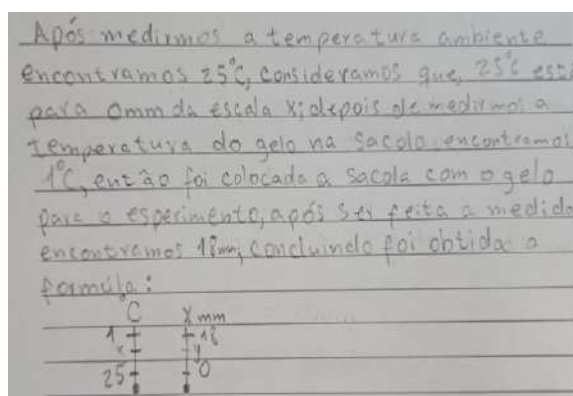 Após medirmos a temperatura ambiente
encontramos 25°C, consideramos que, 25°C est
para 0mm da escala X; depois de medirmos a
temperatura do gelo na sacola, encontramos
1°C, então foi colocada a sacola com o gelo
para o esperimento, após ser feita a medida
encontramos 18mm; concluindo foi obtida a
formula:
°C X mm
1 18
x y
25 0